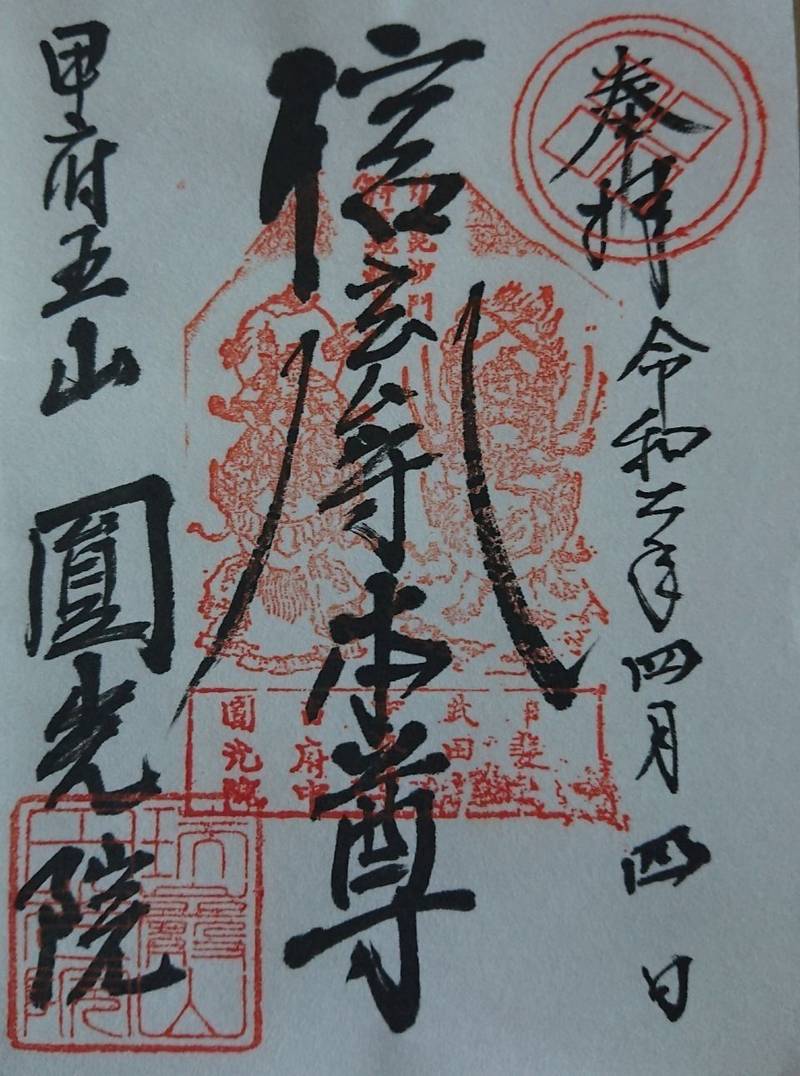 奉拝
令和六年四月四日
信玄公守本尊
甲斐
武田
府中
圓光院
甲府五山
圓光院